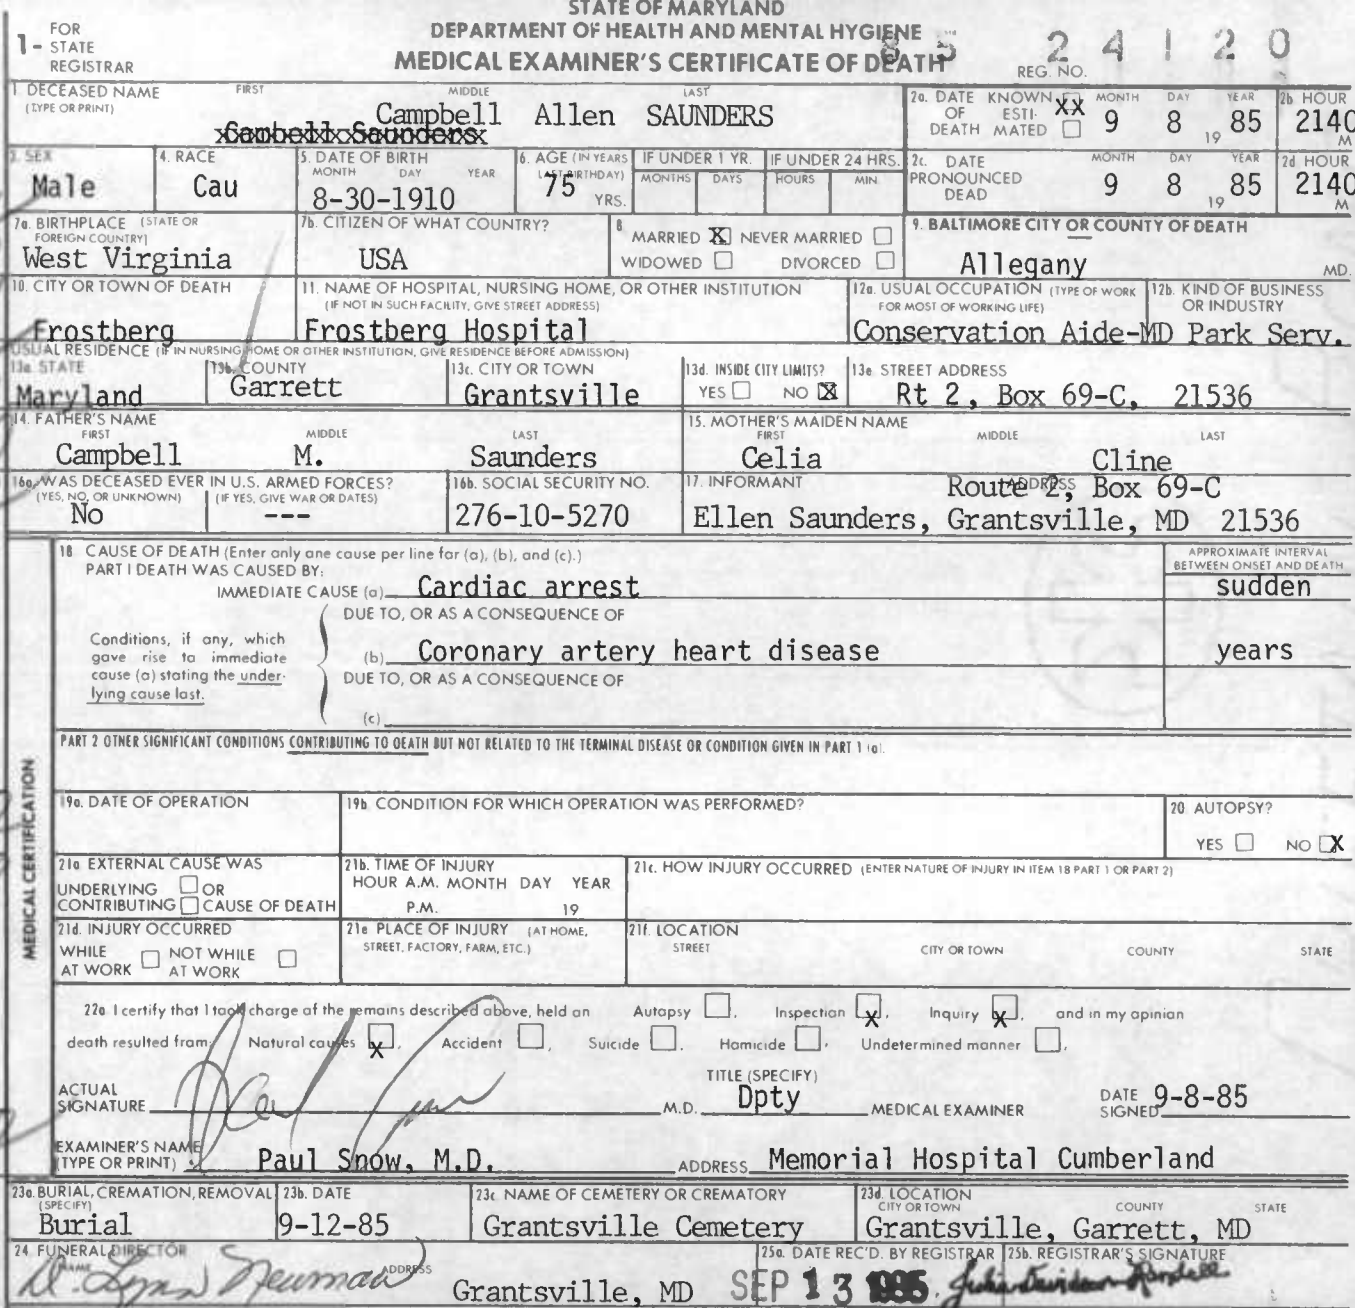 STATE OF MARYLAND
DEPARTMENT OF HEALTH AND MENTAL HYGIENE
MEDICAL EXAMINER'S CERTIFICATE OF DEATH
1- FOR STATE REGISTRAR
REG. NO. 85 24120
1. DECEASED NAME (TYPE OR PRINT) FIRST MIDDLE LAST
Campbell Allen SAUNDERS
Cambell Saunders
2a. DATE OF DEATH KNOWN XX ESTIMATED MONTH DAY YEAR 9 8 19 85
2b HOUR 2140 M
3. SEX Male
4. RACE Cau
5. DATE OF BIRTH MONTH DAY YEAR 8-30-1910
6. AGE (IN YEARS LAST BIRTHDAY) 75 YRS.
IF UNDER 1 YR. MONTHS DAYS
IF UNDER 24 HRS. HOURS MIN
2c. DATE PRONOUNCED DEAD MONTH DAY YEAR 9 8 19 85
2d HOUR 2140 M
7a. BIRTHPLACE (STATE OR FOREIGN COUNTRY) West Virginia
7b. CITIZEN OF WHAT COUNTRY? USA
8 MARRIED X NEVER MARRIED
WIDOWED DIVORCED
9. BALTIMORE CITY OR COUNTY OF DEATH Allegany MD.
10. CITY OR TOWN OF DEATH Frostberg
11. NAME OF HOSPITAL, NURSING HOME, OR OTHER INSTITUTION
(IF NOT IN SUCH FACILITY, GIVE STREET ADDRESS)
Frostberg Hospital
12a. USUAL OCCUPATION (TYPE OF WORK FOR MOST OF WORKING LIFE)
12b. KIND OF BUSINESS OR INDUSTRY
Conservation Aide-MD Park Serv.
USUAL RESIDENCE (IF IN NURSING HOME OR OTHER INSTITUTION, GIVE RESIDENCE BEFORE ADMISSION)
13a STATE Maryland
13b. COUNTY Garrett
13c. CITY OR TOWN Grantsville
13d. INSIDE CITY LIMITS? YES NO X
13e STREET ADDRESS Rt 2, Box 69-C, 21536
14. FATHER'S NAME FIRST MIDDLE LAST
Campbell M. Saunders
15. MOTHER'S MAIDEN NAME FIRST MIDDLE LAST
Celia Cline
16a. WAS DECEASED EVER IN U.S. ARMED FORCES?
(YES, NO, OR UNKNOWN) (IF YES, GIVE WAR OR DATES)
No ---
16b. SOCIAL SECURITY NO. 276-10-5270
17. INFORMANT ADDRESS
Route 2, Box 69-C
Ellen Saunders, Grantsville, MD 21536
MEDICAL CERTIFICATION
18 CAUSE OF DEATH (Enter only one cause per line for (a), (b), and (c).)
PART I DEATH WAS CAUSED BY:
APPROXIMATE INTERVAL BETWEEN ONSET AND DEATH
IMMEDIATE CAUSE (a) Cardiac arrest sudden
DUE TO, OR AS A CONSEQUENCE OF
Conditions, if any, which gave rise to immediate cause (a) stating the underlying cause last.
(b) Coronary artery heart disease years
DUE TO, OR AS A CONSEQUENCE OF
(c)
PART 2 OTHER SIGNIFICANT CONDITIONS CONTRIBUTING TO DEATH BUT NOT RELATED TO THE TERMINAL DISEASE OR CONDITION GIVEN IN PART 1 (a).
19a. DATE OF OPERATION
19b CONDITION FOR WHICH OPERATION WAS PERFORMED?
20 AUTOPSY?
YES NO X
21a EXTERNAL CAUSE WAS
UNDERLYING OR
CONTRIBUTING CAUSE OF DEATH
21b. TIME OF INJURY
HOUR A.M. MONTH DAY YEAR
P.M. 19
21c. HOW INJURY OCCURRED (ENTER NATURE OF INJURY IN ITEM 18 PART 1 OR PART 2)
21d. INJURY OCCURRED
WHILE AT WORK NOT WHILE AT WORK
21e PLACE OF INJURY (AT HOME, STREET, FACTORY, FARM, ETC.)
21f. LOCATION
STREET CITY OR TOWN COUNTY STATE
22a I certify that I took charge of the remains described above, held an Autopsy , Inspection X, Inquiry X, and in my opinion
death resulted from: Natural causes X, Accident , Suicide , Homicide , Undetermined manner .
ACTUAL SIGNATURE Paul Snow M.D.
TITLE (SPECIFY) Dpty MEDICAL EXAMINER
DATE SIGNED 9-8-85
EXAMINER'S NAME (TYPE OR PRINT) Paul Snow, M.D. ADDRESS Memorial Hospital Cumberland
23a. BURIAL, CREMATION, REMOVAL (SPECIFY) Burial
23b. DATE 9-12-85
23c NAME OF CEMETERY OR CREMATORY Grantsville Cemetery
23d. LOCATION CITY OR TOWN COUNTY STATE
Grantsville, Garrett, MD
24 FUNERAL DIRECTOR NAME ADDRESS
D. Lynn Newman Grantsville, MD
25a. DATE REC'D. BY REGISTRAR SEP 13 1985
25b. REGISTRAR'S SIGNATURE